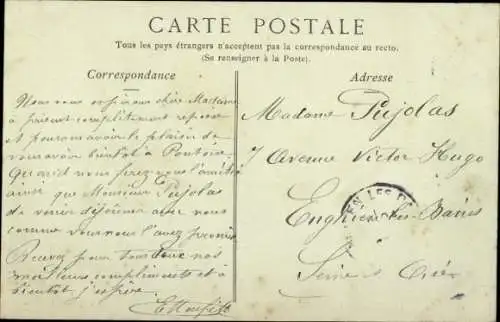 CARTE POSTALE
Tous les pays étrangers n'acceptent pas la correspondance au recto.
(Se renseigner à la Poste).
Correspondance
Nous vous espérons chère Madame
à présent complètement reposée
et pourrons avoir le plaisir de
vous avoir bientôt à Pontoise
Quand nous ferez-vous l'amitié
ainsi que Monsieur Pujolas
de venir déjeuner avec nous
comme vous nous l'avez promis
Recevez pour tous deux nos
meilleurs compliments et à
bientôt j'espère.
Adresse
Madame Pujolas
7 Avenue Victor Hugo
Enghien les Bains
Seine et Oise